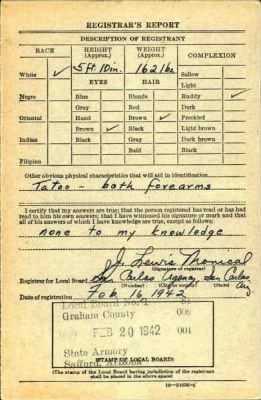 REGISTRAR'S REPORT
DESCRIPTION OF REGISTRANT
RACE HEIGHT (Approx.) WEIGHT (Approx.) COMPLEXION
White ✓ 5 ft. 10 in. 162 lbs. Sallow
EYES HAIR Light
Negro Blue Blonde Ruddy ✓
Gray Red Dark
Oriental Hazel Brown ✓ Freckled
Brown ✓ Black Light brown
Indian Black Gray Dark brown
Bald Black
Filipino
Other obvious physical characteristics that will aid in identification
Tatoo - both forearms
I certify that my answers are true; that the person registered has read or has had
read to him his own answers; that I have witnessed his signature or mark and that
all of his answers of which I have knowledge are true, except as follows:
none to my knowledge
J. Lewis
(Signature of registrar)
Registrar for Local Board San Carlos Agency San Carlos
(Number) (City or county) (State)
Ariz
Date of registration Feb. 16 1942
Local Board No. 1
Graham County
FEB 20 1942 001
State Armory
Safford, Arizona
(STAMP OF LOCAL BOARD)
(The stamp of the Local Board having jurisdiction of the registrant
shall be placed in the above space)